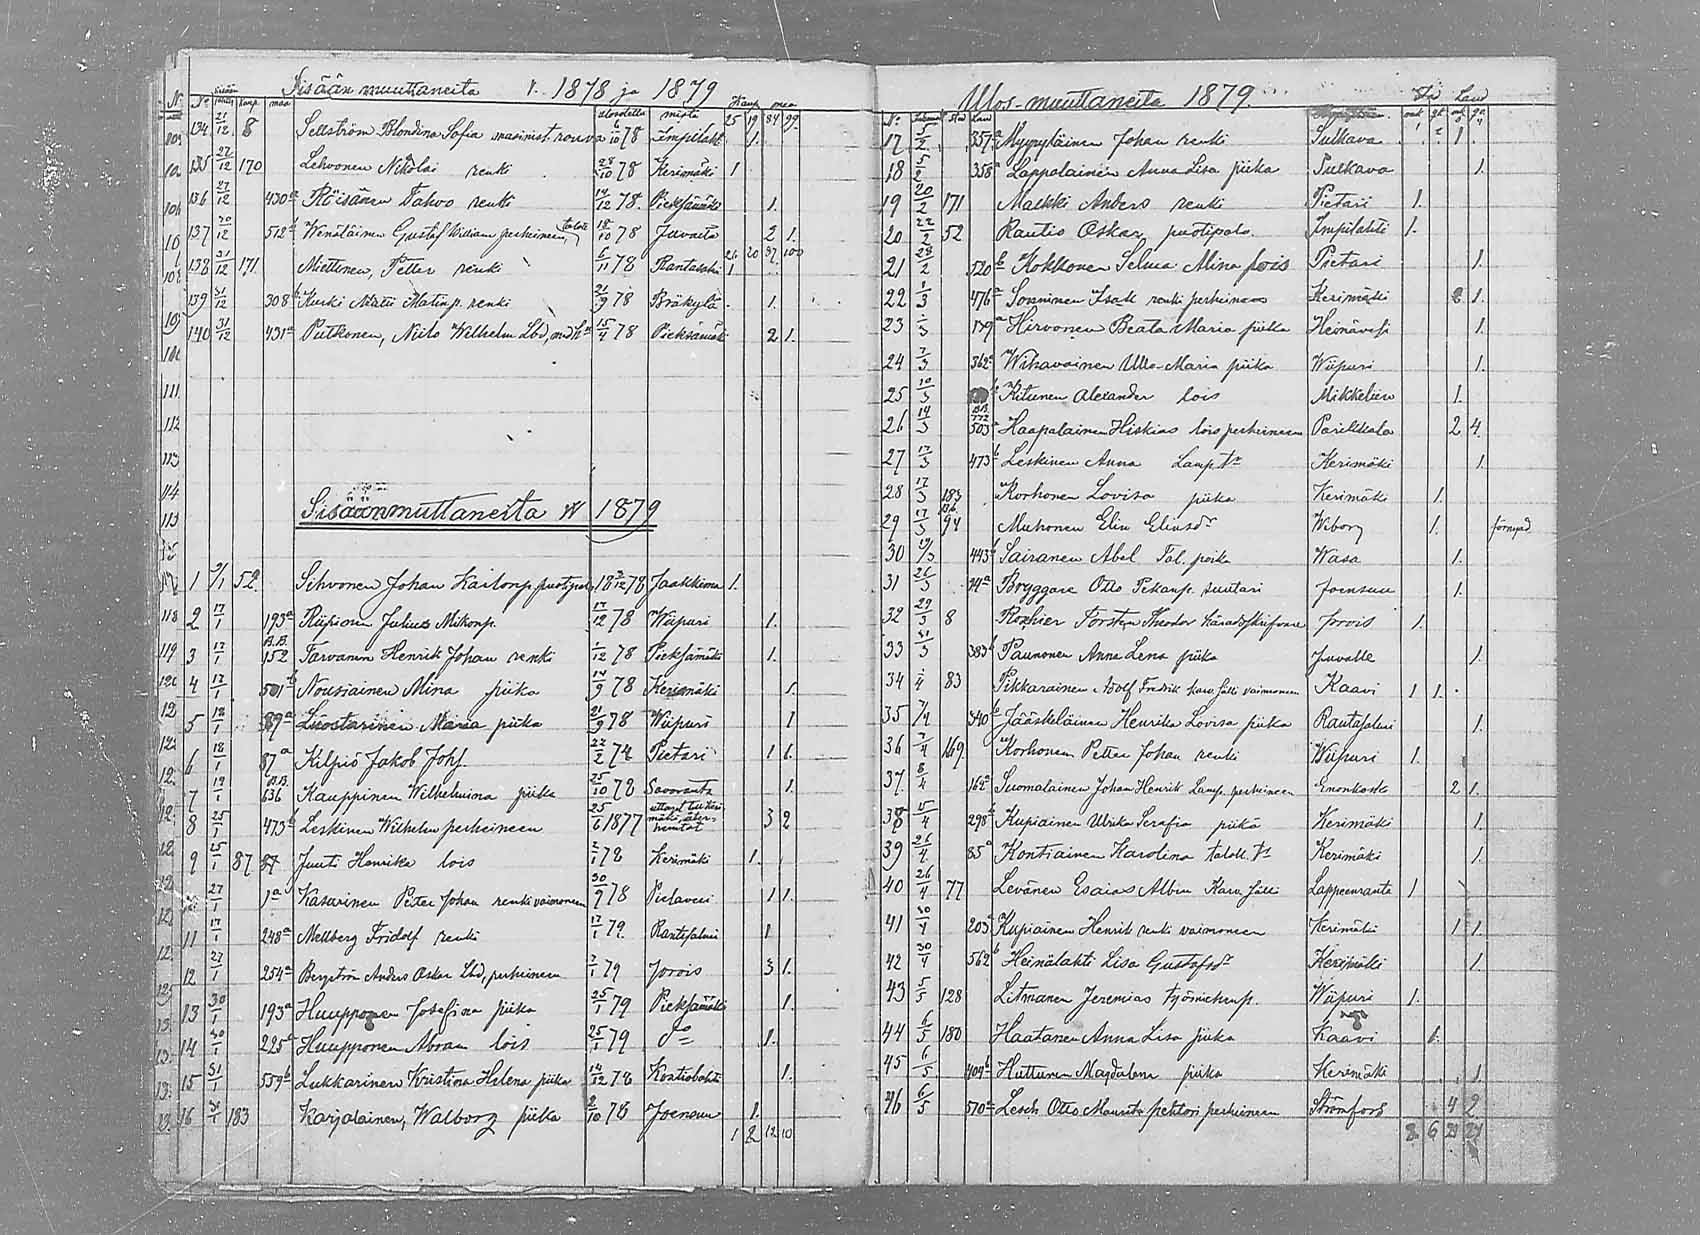 Sisään muuttaneita v. 1878 ja 1879
No kaup. maa mistä Kaup maa
25 19 84 99
134 21/12 8 Sellström Blondina Sofia masinist rouva 6/10 78 Impilaht 1.
135 27/12 170 Lehvonen Nikolai renki 28/10 78 Kerimäki 1
136 27/12 430a Röisänen Tahvo renki 14/12 78. Pieksämäki 1.
137 30/12 512 Wenäläinen Gustaf William perheineen 18/10 78 Juvalta 2 1.
26 20 87 100
138 31/12 171 Miettinen, Petter renki 6/11 78 Rantasalmi 1
139 31/12 308b Kurki Matts Matinp. renki 21/9 78 Bräkylä 1.
140 31/12 431a Putkonen, Niilo Wilhelm Lbd, med h 15/4 78 Pieksämäki 2 1.
Sisäänmuttaneita v 1879
1 2/1 52 Sihvonen Johan Kaitonp. puotipal. 18 3/12 78 Jaakkima 1.
2 17/1 193a Räpionen Julius Mikonp. 17/12 78 Wiipuri 1.
3 17/1 B.B. 152 Tarvanen Henrik Johan renki 1/12 78 Pieksämäki 1.
4 17/1 501b Nousiainen Mina piika 14/9 78 Kerimäki 1.
5 18/1 89a Luostarinen Maria piika 21/9 78 Wiipuri 1
6 18/1 87a Kilpiö Jakob Johs. 22/2 74 Pietari 1 1.
7 19/1 B.B. 636 Kauppinen Wilhelmina piika 25/10 78 Savoranta 1.
8 25/1 473b Leskinen Wilhelm perheineen 25/6 1877 3 2
9 25/1 87 Juuti Henrika lois 2/1 78 Kerimäki 1.
27/1 1a Kasurinen Peter Johan renki vaimoneen 30/9 78 Pielavesi 1 1.
11 17/1 248a Mellberg Fridolf renki 17/1 79. Rantasalmi 1
12 27/1 254a Bergström Anders Oskar Lbd, perheineen 7/1 79 Jorois 3 1.
13 30/1 193a Huupponen Josefina piika 25/1 79 Pieksämäki 1.
14 30/1 225a Huupponen Abram lois 25/1 79 do 1.
15 31/1 559b Lukkarinen Kristina Helena piika 14/12 78 Kontiolahti 1.
16 31/1 183 Karjalainen, Walborg piika 2/10 78 Joensuu 1.
1 2 12 10
Ulos-muuttaneita 1879.
17 5/2 357a Myyryläinen Johan renki Sulkava 1
18 5/2 358a Lappalainen Anna Lisa piika Sulkava 1.
19 20/2 171 Malkki Anders renki Pietari 1.
20 22/2 52 Rautio Oskar puotipals. Impilahti 1.
21 28/2 520b Kokkonen Selma Mina lois Pietari 1.
22 1/3 476a Sorminen Isak renki perheineen Kerimäki 2 1.
23 1/3 179a Hirvonen Beata Maria piika Heinävesi 1.
24 7/3 362a Wihavainen Ulla-Maria piika Wiipuri 1.
25 10/3 Kitunen Alexander lois Mikkeliin 1.
26 14/3 B.B. 772 503a Haapalainen Hiskias lois perheineen Parikkala 2 4.
27 17/3 473b Leskinen Anna Lamp. tr Kerimäki 1.
28 17/3 183 Korhonen Lovisa piika Kerimäki 1.
29 17/3 94 Muhonen Elin Eliasdr Wiborg 1. förnyad
30 19/3 443b Sairanen Abel Tal. poika Wasa 1.
31 26/3 74a Bryggare Otto Pekanp. suutari Joensuu 1.
32 29/3 8 Rozhier Torsten Theodor häradsskrifvare Jorois 1.
33 31/3 383b Paunonen Anna Lena piika Juvalle 1.
34 1/4 83 Pikkarainen Adolf Fredrik karv. sälli vaimoneen Kaavi 1 1.
35 7/4 340b Jääskeläinen Henrika Lovisa piika Rantasalmi 1
36 7/4 169. Korhonen Petter Johan renki Wiipuri 1.
37 8/4 162a Suomalainen Johan Henrik Lamp. perheineen Enonkoski 2 1.
38 15/4 298b Kupiainen Ulrika Serafia piika Kerimäki 1.
39 26/4 85a Kontiainen Karolina talok. tr Kerimäki 1.
40 26/4 77 Levänen Esaias Albin Karv. sälli Lappeenranta 1
41 30/4 203a Kupiainen Henrik renki vaimoneen Kerimäki 1 1
42 30/4 562b Heinälahti Lisa Gustafsdr Kerimäki 1.
43 5/5 128 Litmanen Jeremias työmiehenp. Wiipuri 1.
44 6/5 180 Haatanen Anna Lisa piika Kaavi 1.
45 6/5 404b Hutturen Magdalena piika Kerimäki 1
46 6/5 570a Lesch Otto Maurits pehtori perheineen Strömfors 4 2
8 6 21 27